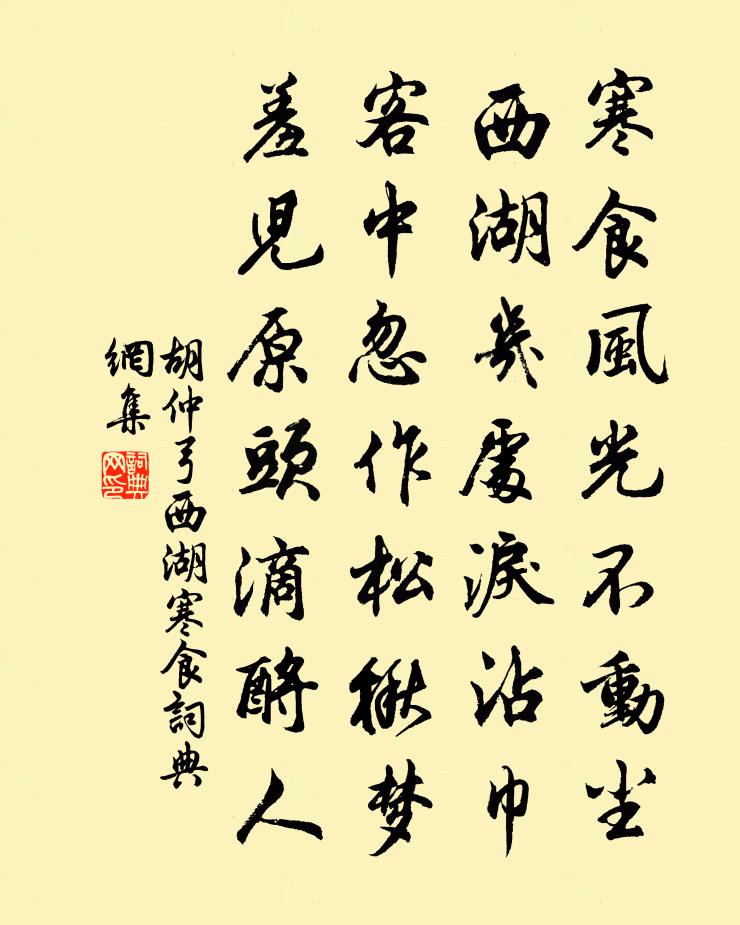 寒食風光不動尘
西湖幾處淚沾巾
客中忽作松楸梦
羞見原頭滴酹人
胡仲弓西湖寒食詞典
網集
詞典网印